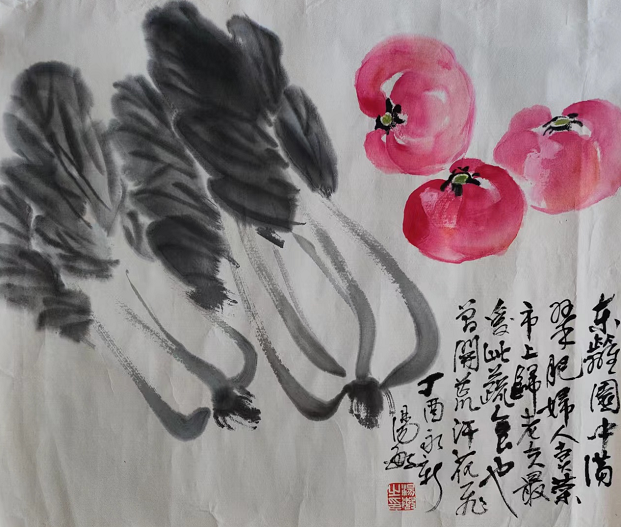 东篱园中满
翠肥妇人卖菜
市上归老夫最
爱此蔬食也
曾开荒汗花飞
丁酉永新